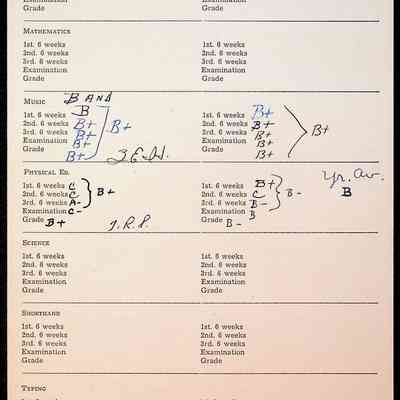 Examination
Grade
MATHEMATICS
1st. 6 weeks 1st. 6 weeks
2nd. 6 weeks 2nd. 6 weeks
3rd. 6 weeks 3rd. 6 weeks
Examination Examination
Grade Grade
MUSIC BAND
1st. 6 weeks B 1st. 6 weeks B+
2nd. 6 weeks B+ B+ 2nd. 6 weeks B+ B+
3rd. 6 weeks B+ 3rd. 6 weeks B+
Examination B+ Examination B+
Grade B+ Grade B+
PHYSICAL ED. Yr. Av.
1st. 6 weeks C 1st. 6 weeks B+ B
2nd. 6 weeks C B+ 2nd. 6 weeks C B-
3rd. 6 weeks A- 3rd. 6 weeks B-
Examination C- Examination B
Grade B+ J.R.P. Grade B-
SCIENCE
1st. 6 weeks 1st. 6 weeks
2nd. 6 weeks 2nd. 6 weeks
3rd. 6 weeks 3rd. 6 weeks
Examination Examination
Grade Grade
SHORTHAND
1st. 6 weeks 1st. 6 weeks
2nd. 6 weeks 2nd. 6 weeks
3rd. 6 weeks 3rd. 6 weeks
Examination Examination
Grade Grade
TYPING